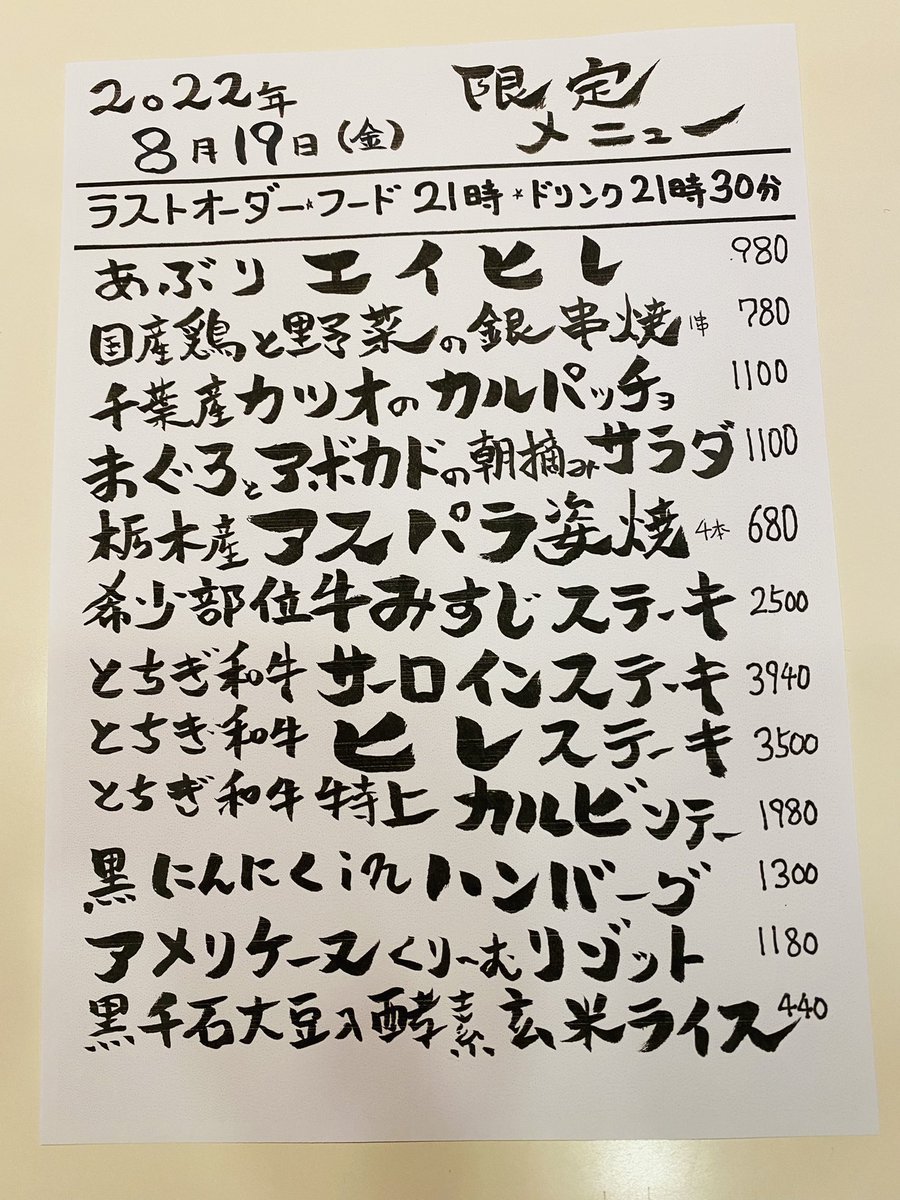 2022年 限定
8月19日(金) メニュー
ラストオーダー*フード 21時 *ドリンク21時30分
あぶり エイヒレ 980
国産鶏と野菜の銀串焼 1串 780
千葉産カツオのカルパッチョ 1100
まぐろとアボカドの朝摘みサラダ 1100
栃木産アスパラ姿焼 4本 680
希少部位牛みすじステーキ 2500
とちぎ和牛 サーロインステーキ 3940
とちぎ和牛 ヒレステーキ 3500
とちぎ和牛特上 カルビソテー 1980
黒にんにくinハンバーグ 1300
アメリケーヌくりーむリゾット 1180
黒千石大豆入酵素玄米ライス 440